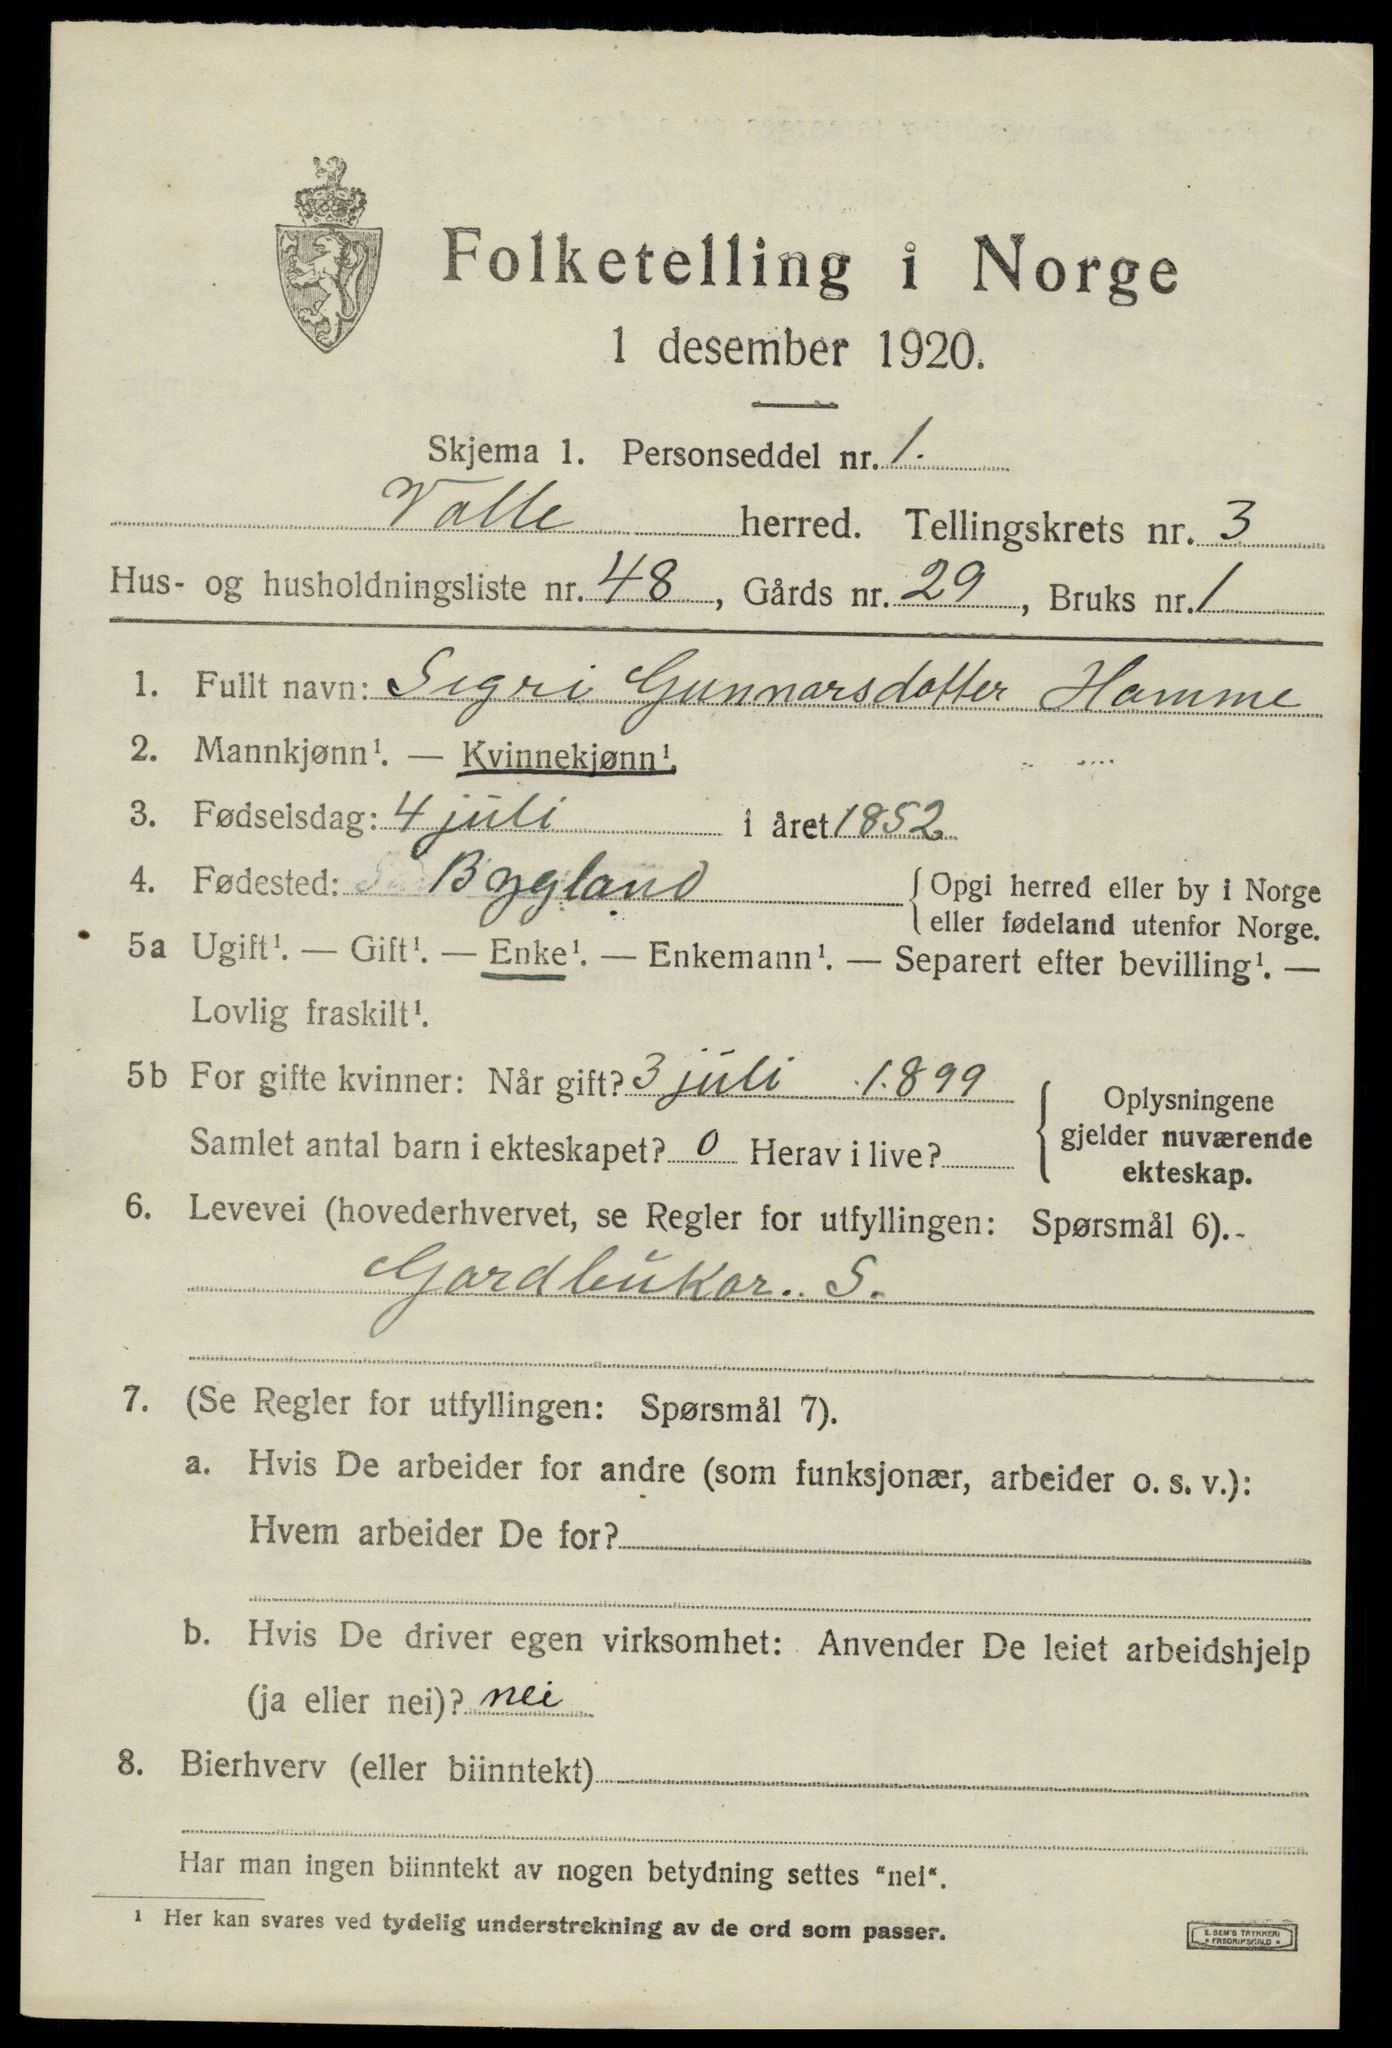 Folketelling i Norge
1 desember 1920.
Skjema 1. Personseddel nr. 1.
Valle herred. Tellingskrets nr. 3
Hus- og husholdningsliste nr. 48, Gårds nr. 29, Bruks nr. 1
1. Fullt navn: Sigri Gunnarsdatter Hamme
2. Mannkjønn¹. — Kvinnekjønn¹.
3. Fødselsdag: 4 juli i året 1852
4. Fødested: Bygland {Opgi herred eller by i Norge
eller fødeland utenfor Norge.
5a Ugift¹. — Gift¹. — Enke¹. — Enkemann¹. — Separert efter bevilling¹. —
Lovlig fraskilt¹.
5b For gifte kvinner: Når gift? 3 juli 1899
Samlet antal barn i ekteskapet? 0 Herav i live?
Oplysningene
gjelder nuværende
ekteskap.
6. Levevei (hovederhvervet, se Regler for utfyllingen: Spørsmål 6).
Gardbukar. S.
7. (Se Regler for utfyllingen: Spørsmål 7).
a. Hvis De arbeider for andre (som funksjonær, arbeider o. s. v.):
Hvem arbeider De for?
b. Hvis De driver egen virksomhet: Anvender De leiet arbeidshjelp
(ja eller nei)? nei
8. Bierhverv (eller biinntekt)
Har man ingen biinntekt av nogen betydning settes "nei".
¹ Her kan svares ved tydelig understrekning av de ord som passer.
E. SEM'S TRYKKERI
FREDRIKSHALD